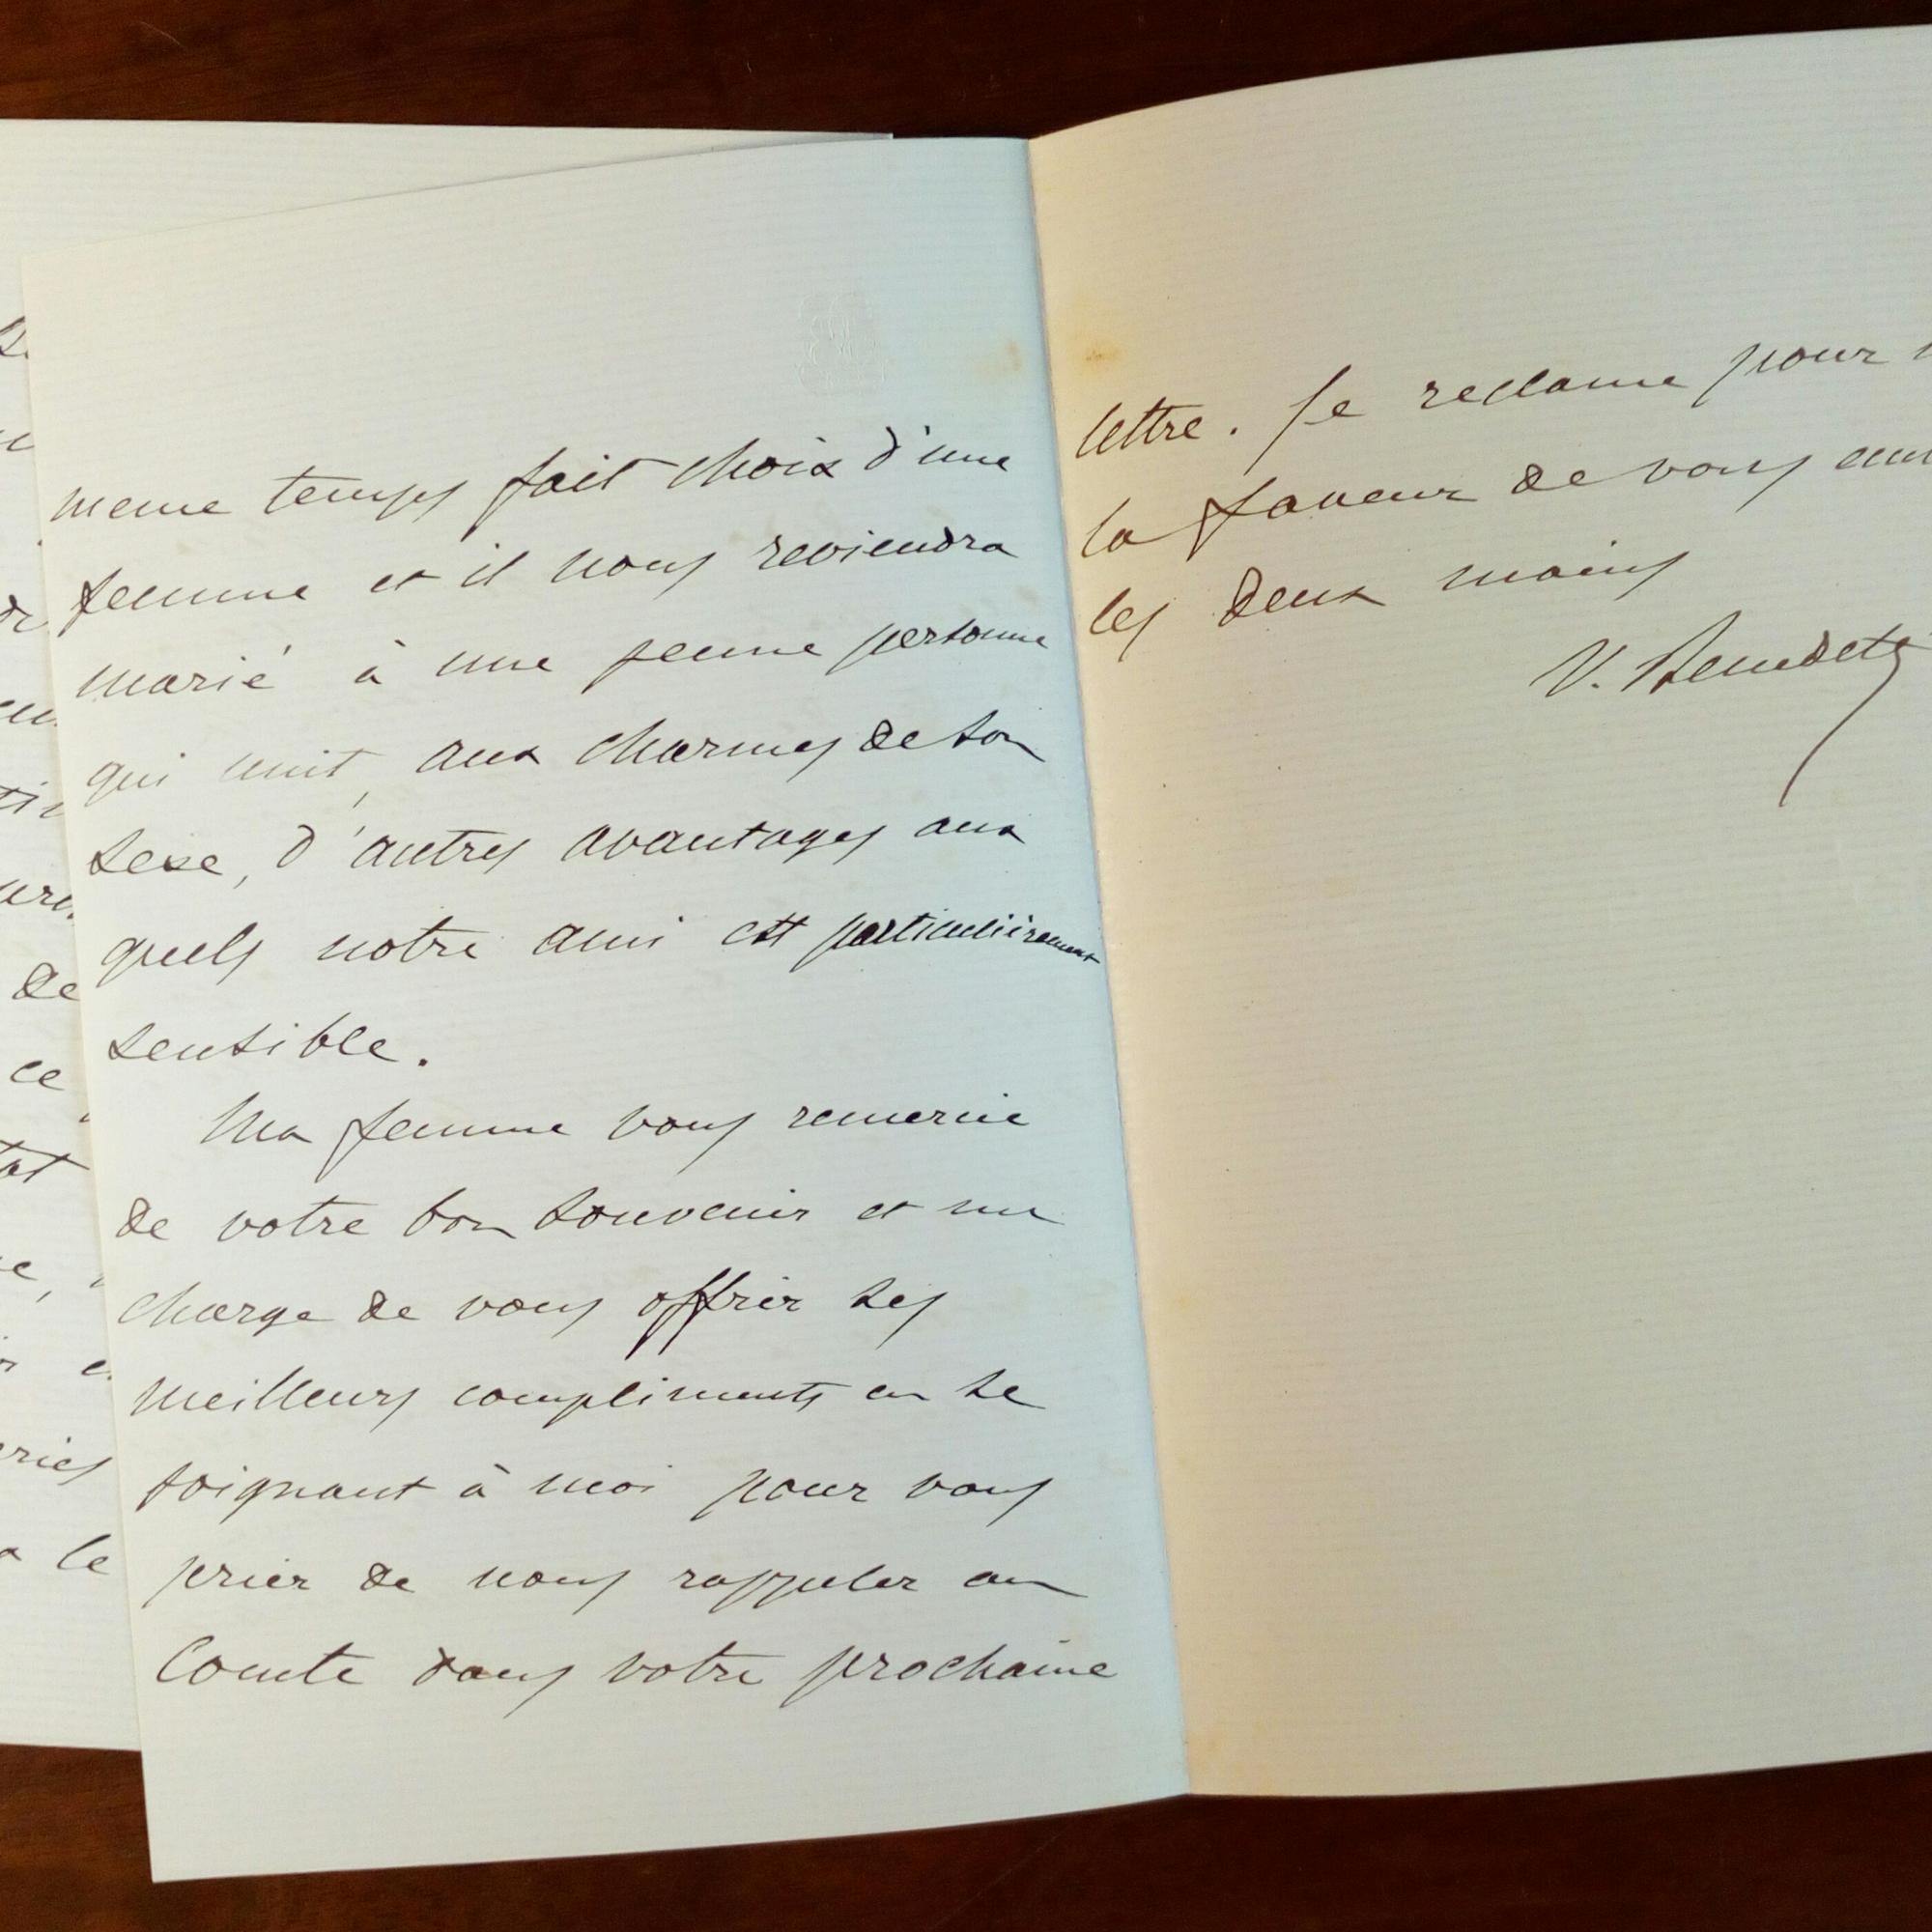 meme temps fait choix d'une
femme et il nous reviendra
marié à une jeune personne
qui unit, aux charmes de son
sexe, d'autres avantages aux
quels notre ami est particulièrement
sensible.
Ma femme vous remercie
de votre bon souvenir et me
charge de vous offrir ses
meilleurs compliments en se
joignant à moi pour vous
prier de nous rappeler au
Comte dans votre prochaine
lettre. Je reclame pour
la faveur de vous
les deux mains
V. Benedetti
de
ce
le